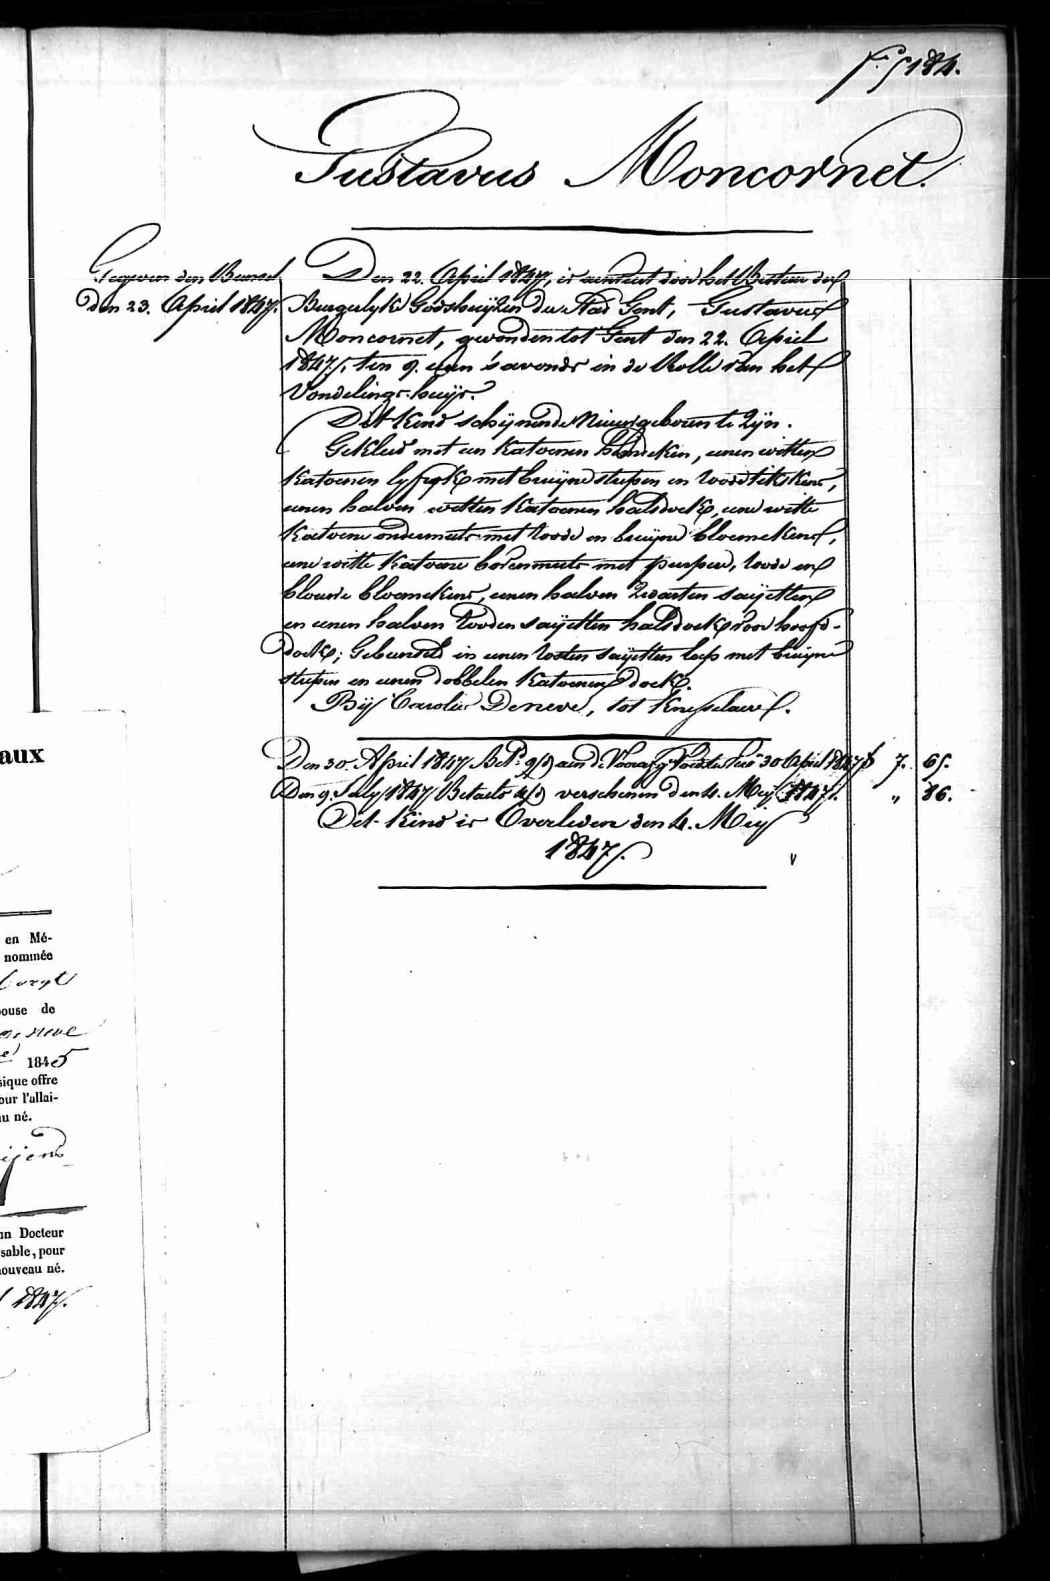 F.° 184.
Gustavus Moncornet.
Gegeven den Bundel
den 23. April 1847.
Den 22. April 1847, is aenveerd door het Bestuer der
Burgerlyke Godshuijzen der Stad Gent, Gustavus
Moncornet, gevonden tot Gent den 22. April
1847, ten 9. uren 's avonds in de Rolle van het
Vondelings-huijs.
Dit kind schijnende Nieuwgeboren te Zijn.
Gekleed met een katoenen hemdeken, eenen witten
katoenen lyfrok met bruijne strepen en
eenen halven witten katoenen halsdoek, eene witte
katoene ondermuts met roode en bruijne bloemekens,
eene witte katoene bovenmuts met purpere, roode en
blauwe bloemekens, eenen halven zwarten saijetten
en eenen halven rooden saijetten halsdoek voor hoofd-
doek; Gebunseld in eenen rosten saijetten lap met bruijne
strepen en eenen dobbelen katoenen doek.
Bij Carolus Deneve, tot Knesselaere.
Den 30. April 1847 Bet.d aen de 30 April 1847 f 7. 65.
Den 9. July 1847 Betaeld verschenen den 4. Meij 1847. " 86.
Dit kind is Overleden den 4. Meij
1847.
aux
en Mé-
nommée
ouse de
neve
1845
sique offre
our l'allai-
au né.
un Docteur
sable, pour
nouveau né.
1847.